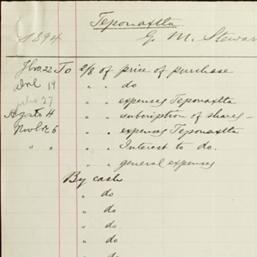 Teponaxtla
1894 G. M. Stewar
Fbro 22 To 2/8 of price of purchase
abril 19 " do
julio 27 " expenses Teponaxtla
Agosto 4 " subscription of shares -
Novbre 5 " expenses Teponaxtla
" " " Interest to do.
" general expenses
By cash
" do
" do
" do
" do
" do